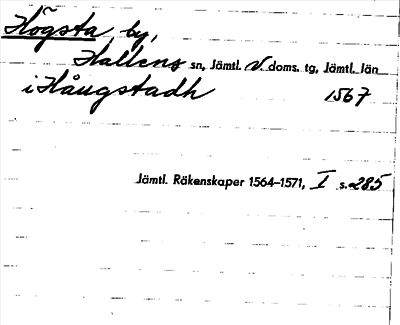 Högsta by,
Hallens sn, Jämtl. V. doms. tg, Jämtl. län
i Håugstadh 1567
Jämtl. Räkenskaper 1564–1571, I s. 285